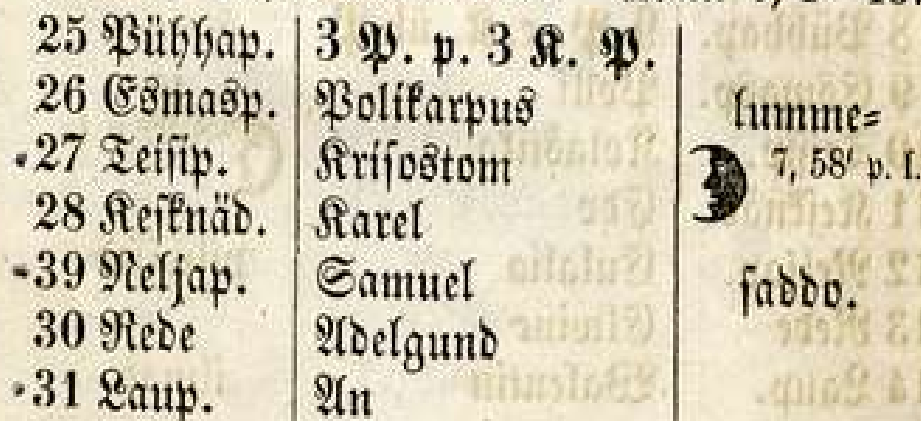 25 Pühhap. 3 P. p. 3 K. P.
26 Esmasp. Polikarpus lumme=
27 Teisip. Krisostom 7, 58' p. l.
28 Kesknäd. Karel
39 Neljap. Samuel saddo.
30 Rede Adelgund
31 Laup. An